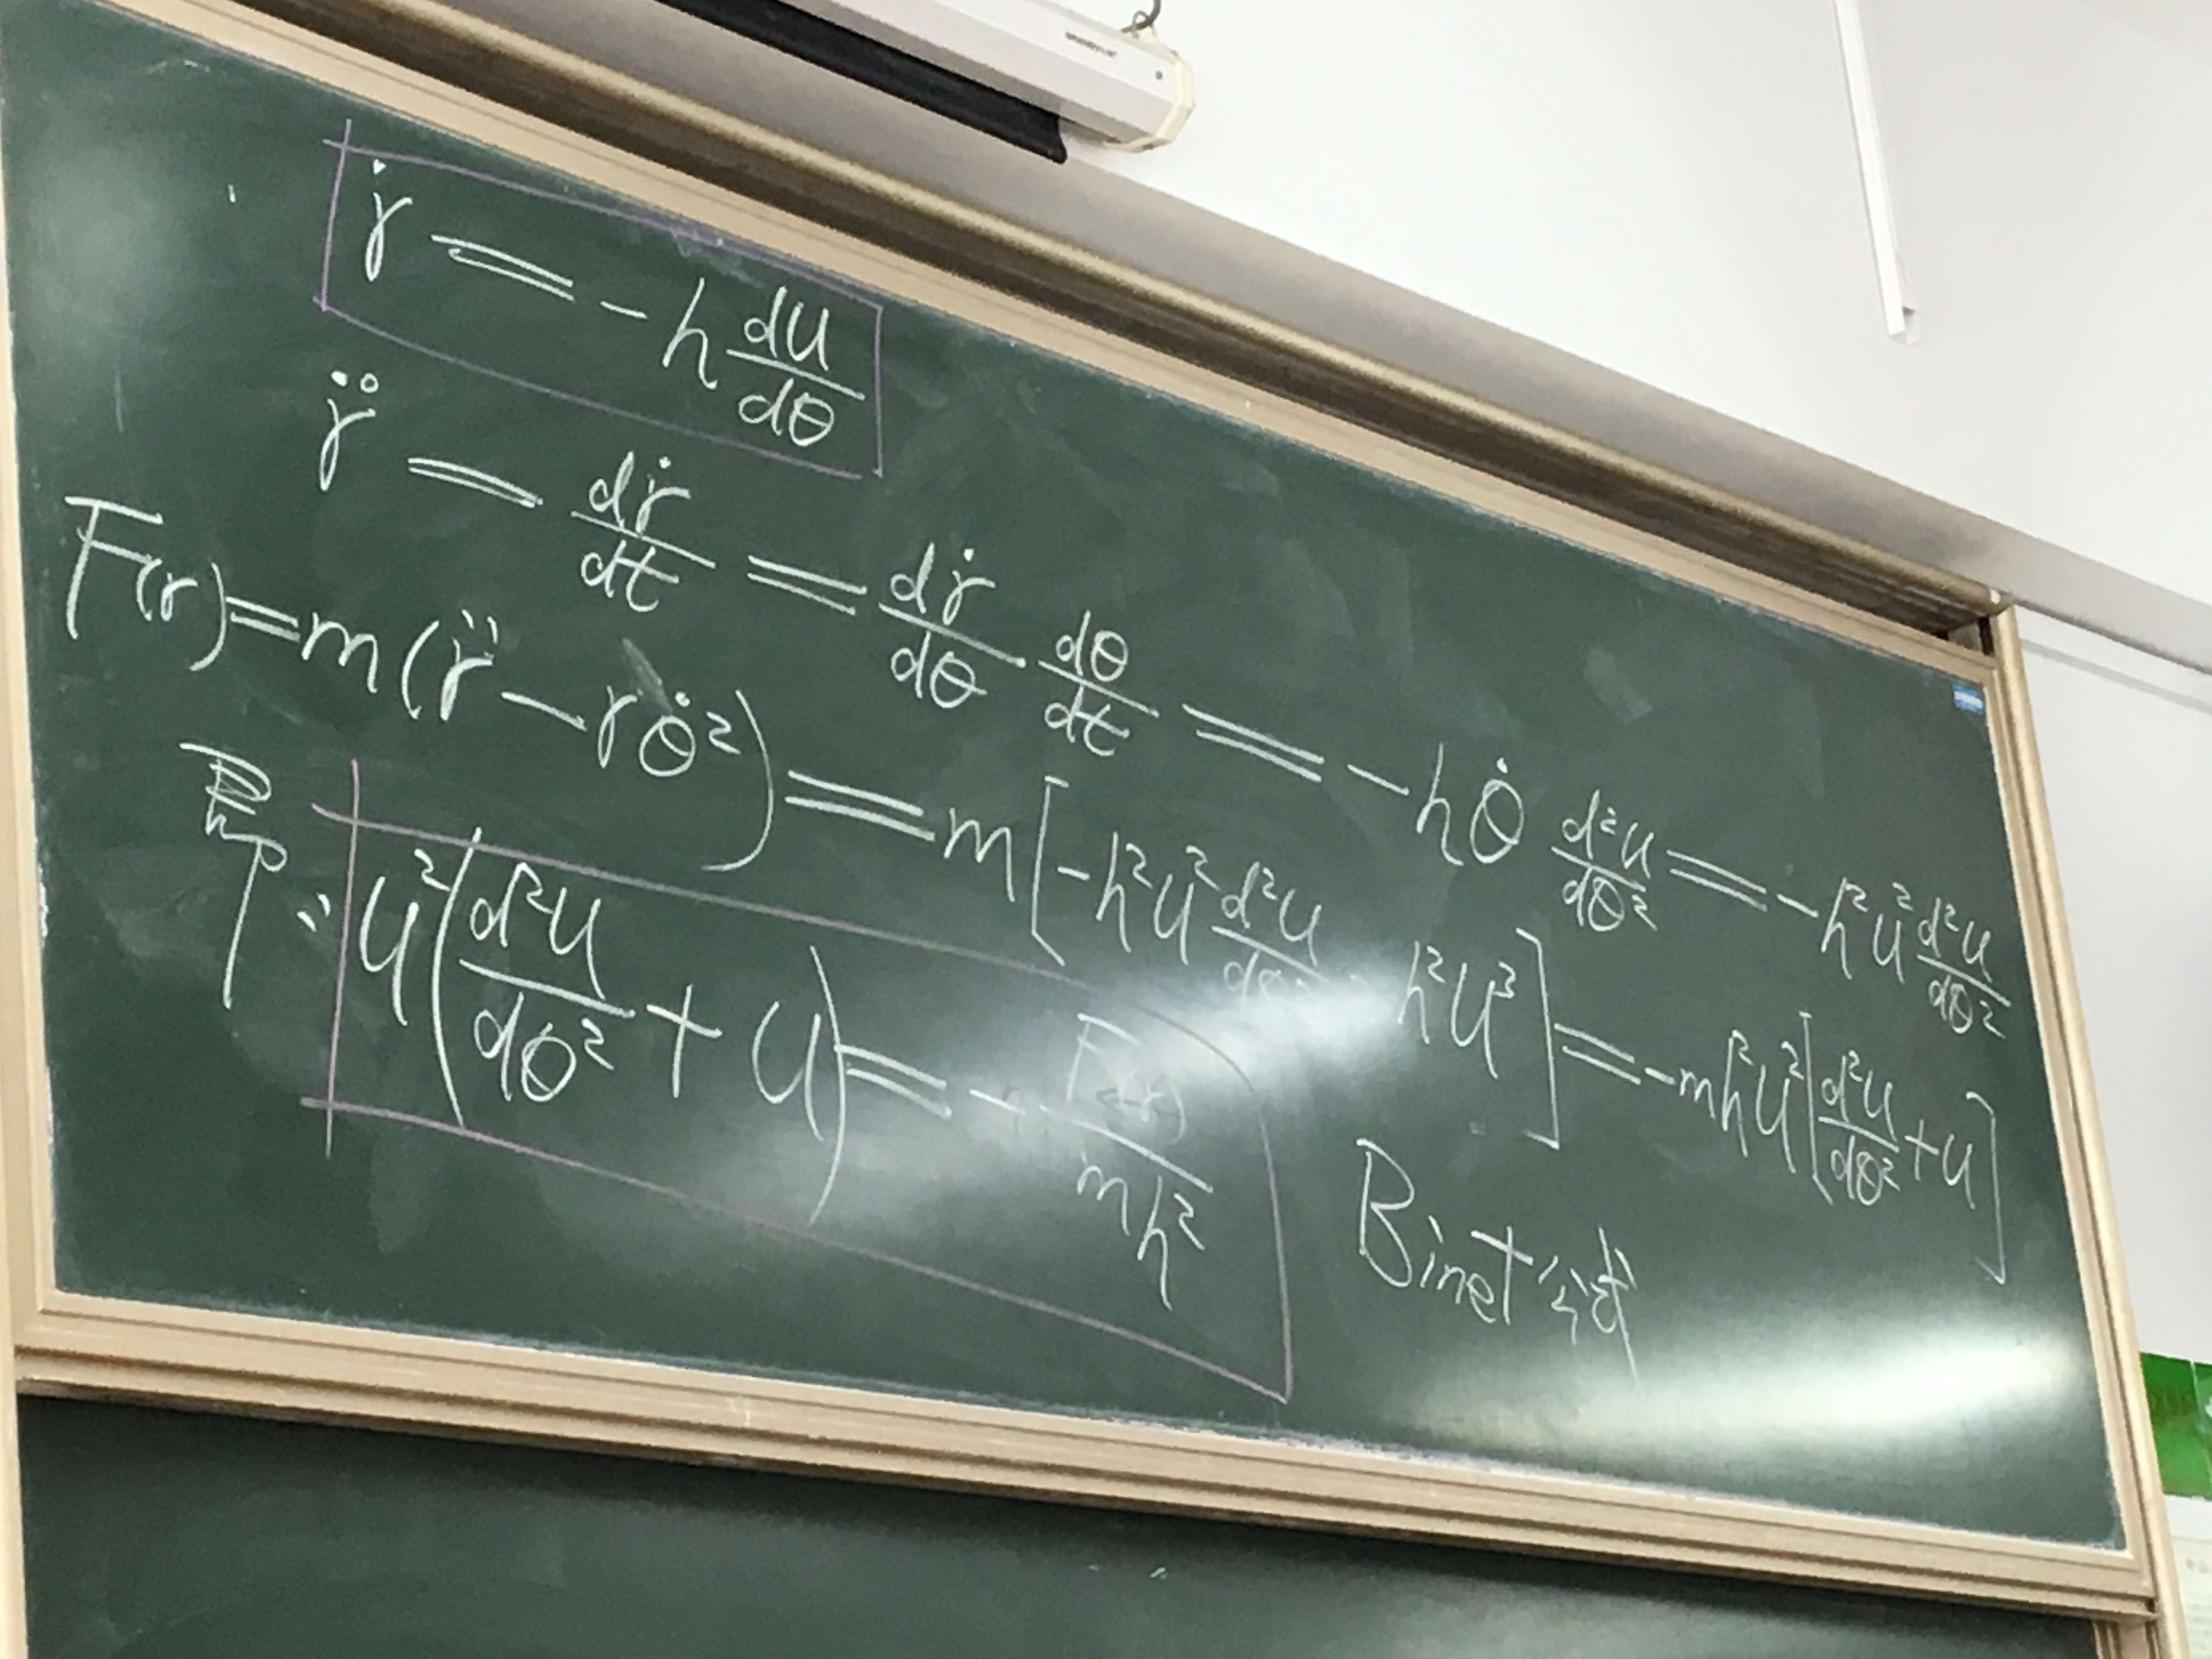 ṙ = -h du/dθ
r̈ = dṙ/dt = dṙ/dθ dθ/dt = -hθ̇ d²u/dθ² = -h²u² d²u/dθ²
F(r) = m(r̈ - rθ̇²) = m[-h²u² d²u/dθ² h²u³] = -mh²u²[d²u/dθ² + u]
即: u²(d²u/dθ² + u) = - F(r)/mh²
Binet公式